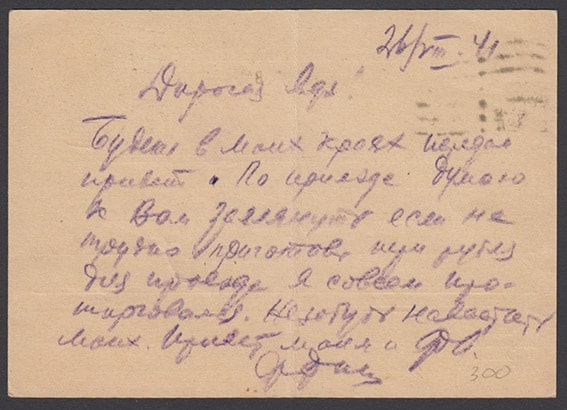 26/VIII 41
Дорогая Ядя!
Будеш в моих краях передай
привет. По приезде думаю
к Вам заглянуть если не
трудно приготовь три рубля
для проезда я совсем про-
торговался. Не забудь навестить
моих. Привет
300